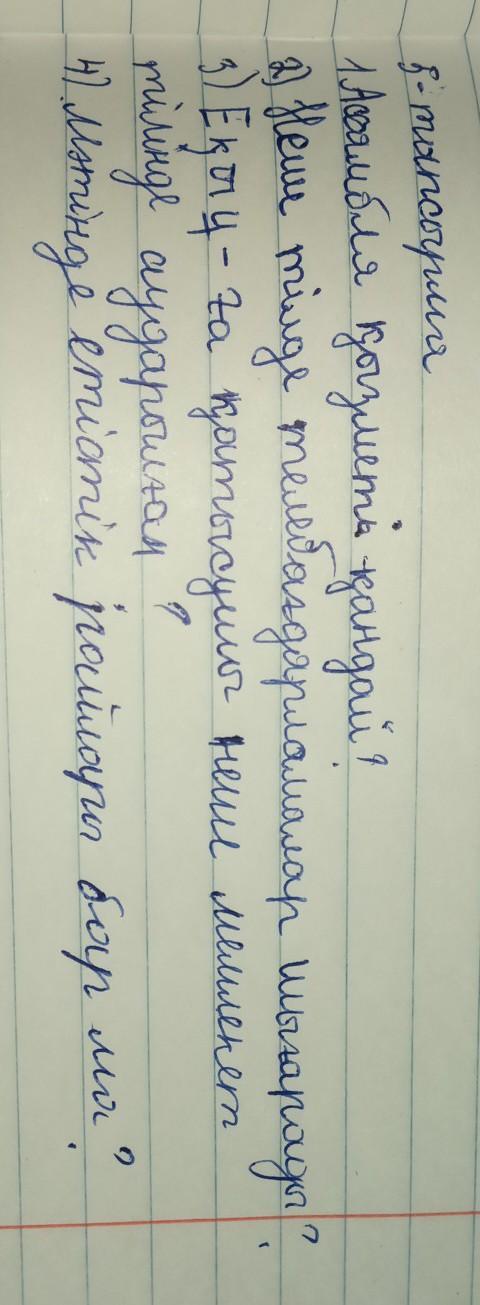 3-тапсырма
1. Ассамбля қызметі қандай?
2) Неше тілде телебағдарламалар шығарады?
3) ЕҚЫҰ-ға қатысушы неше мемлекет
тілінде аударылған?
4) Мәтінде етістік райлары бар ма?